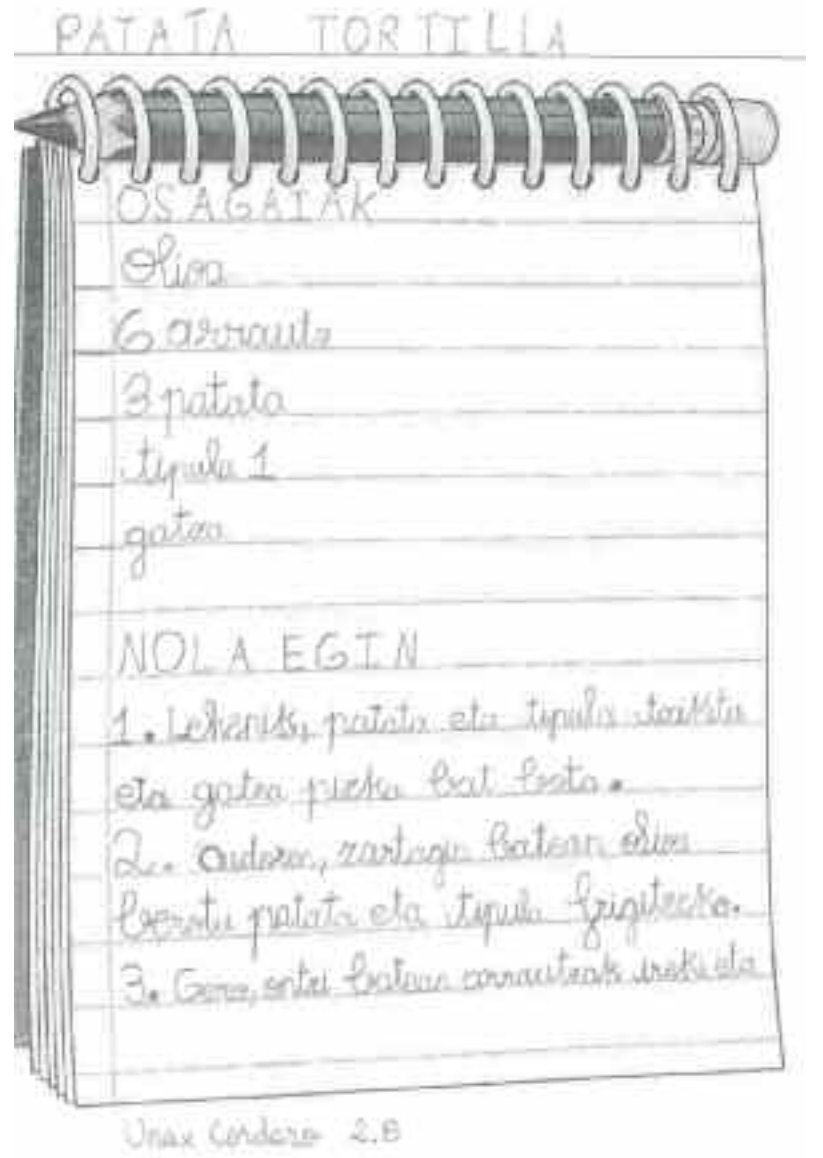 PATATA TORTILLA
OSAGAIAK
Oliva
6 arrautz
3 patata
tipula 1
gatza
NOLA EGIN
1. Lehenik, patata eta tipula txikitu
eta gatza pixka bat bota.
2. ondoren, zartagin batean oliva
berotu patata eta tipula frigitzeko.
3. Gero, ontzi batean arrautzak ireki eta
Unax Cordero 2.B